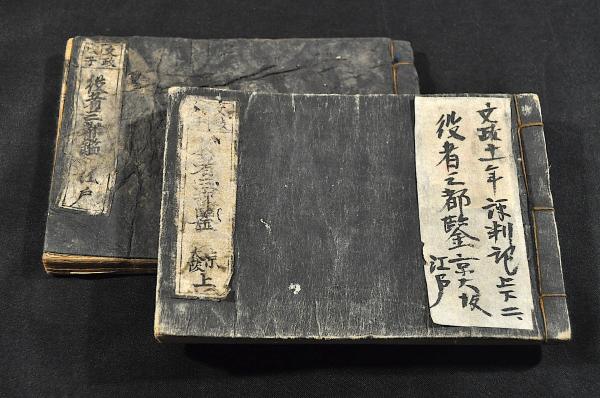 文政十一年 評判記 上下二、
役者三都鑒 京大坂
江戸
者三都鑑 京
大坂 上
文政
戊子
役者三都鑑 江戸